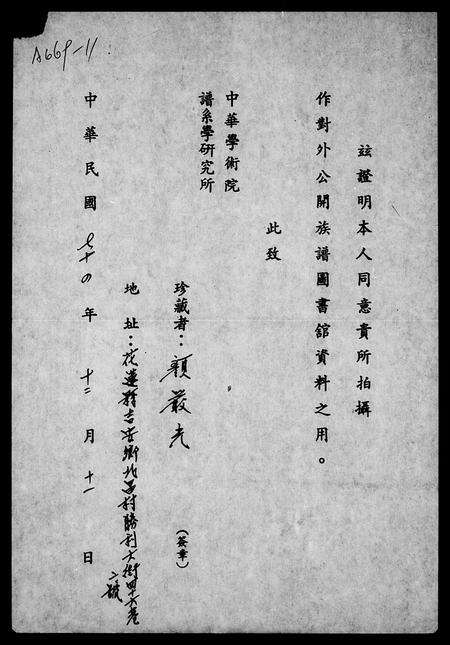 A669-11
茲證明本人同意貴所拍攝
作對外公開族譜圖書舘資料之用。
此致
中華學術院
譜系學研究所
珍藏者：顏嚴光
(簽章)
地址：花蓮縣吉安鄉北昌村勝利大街四十六巷
二號
中華民國七十四年十二月十一日